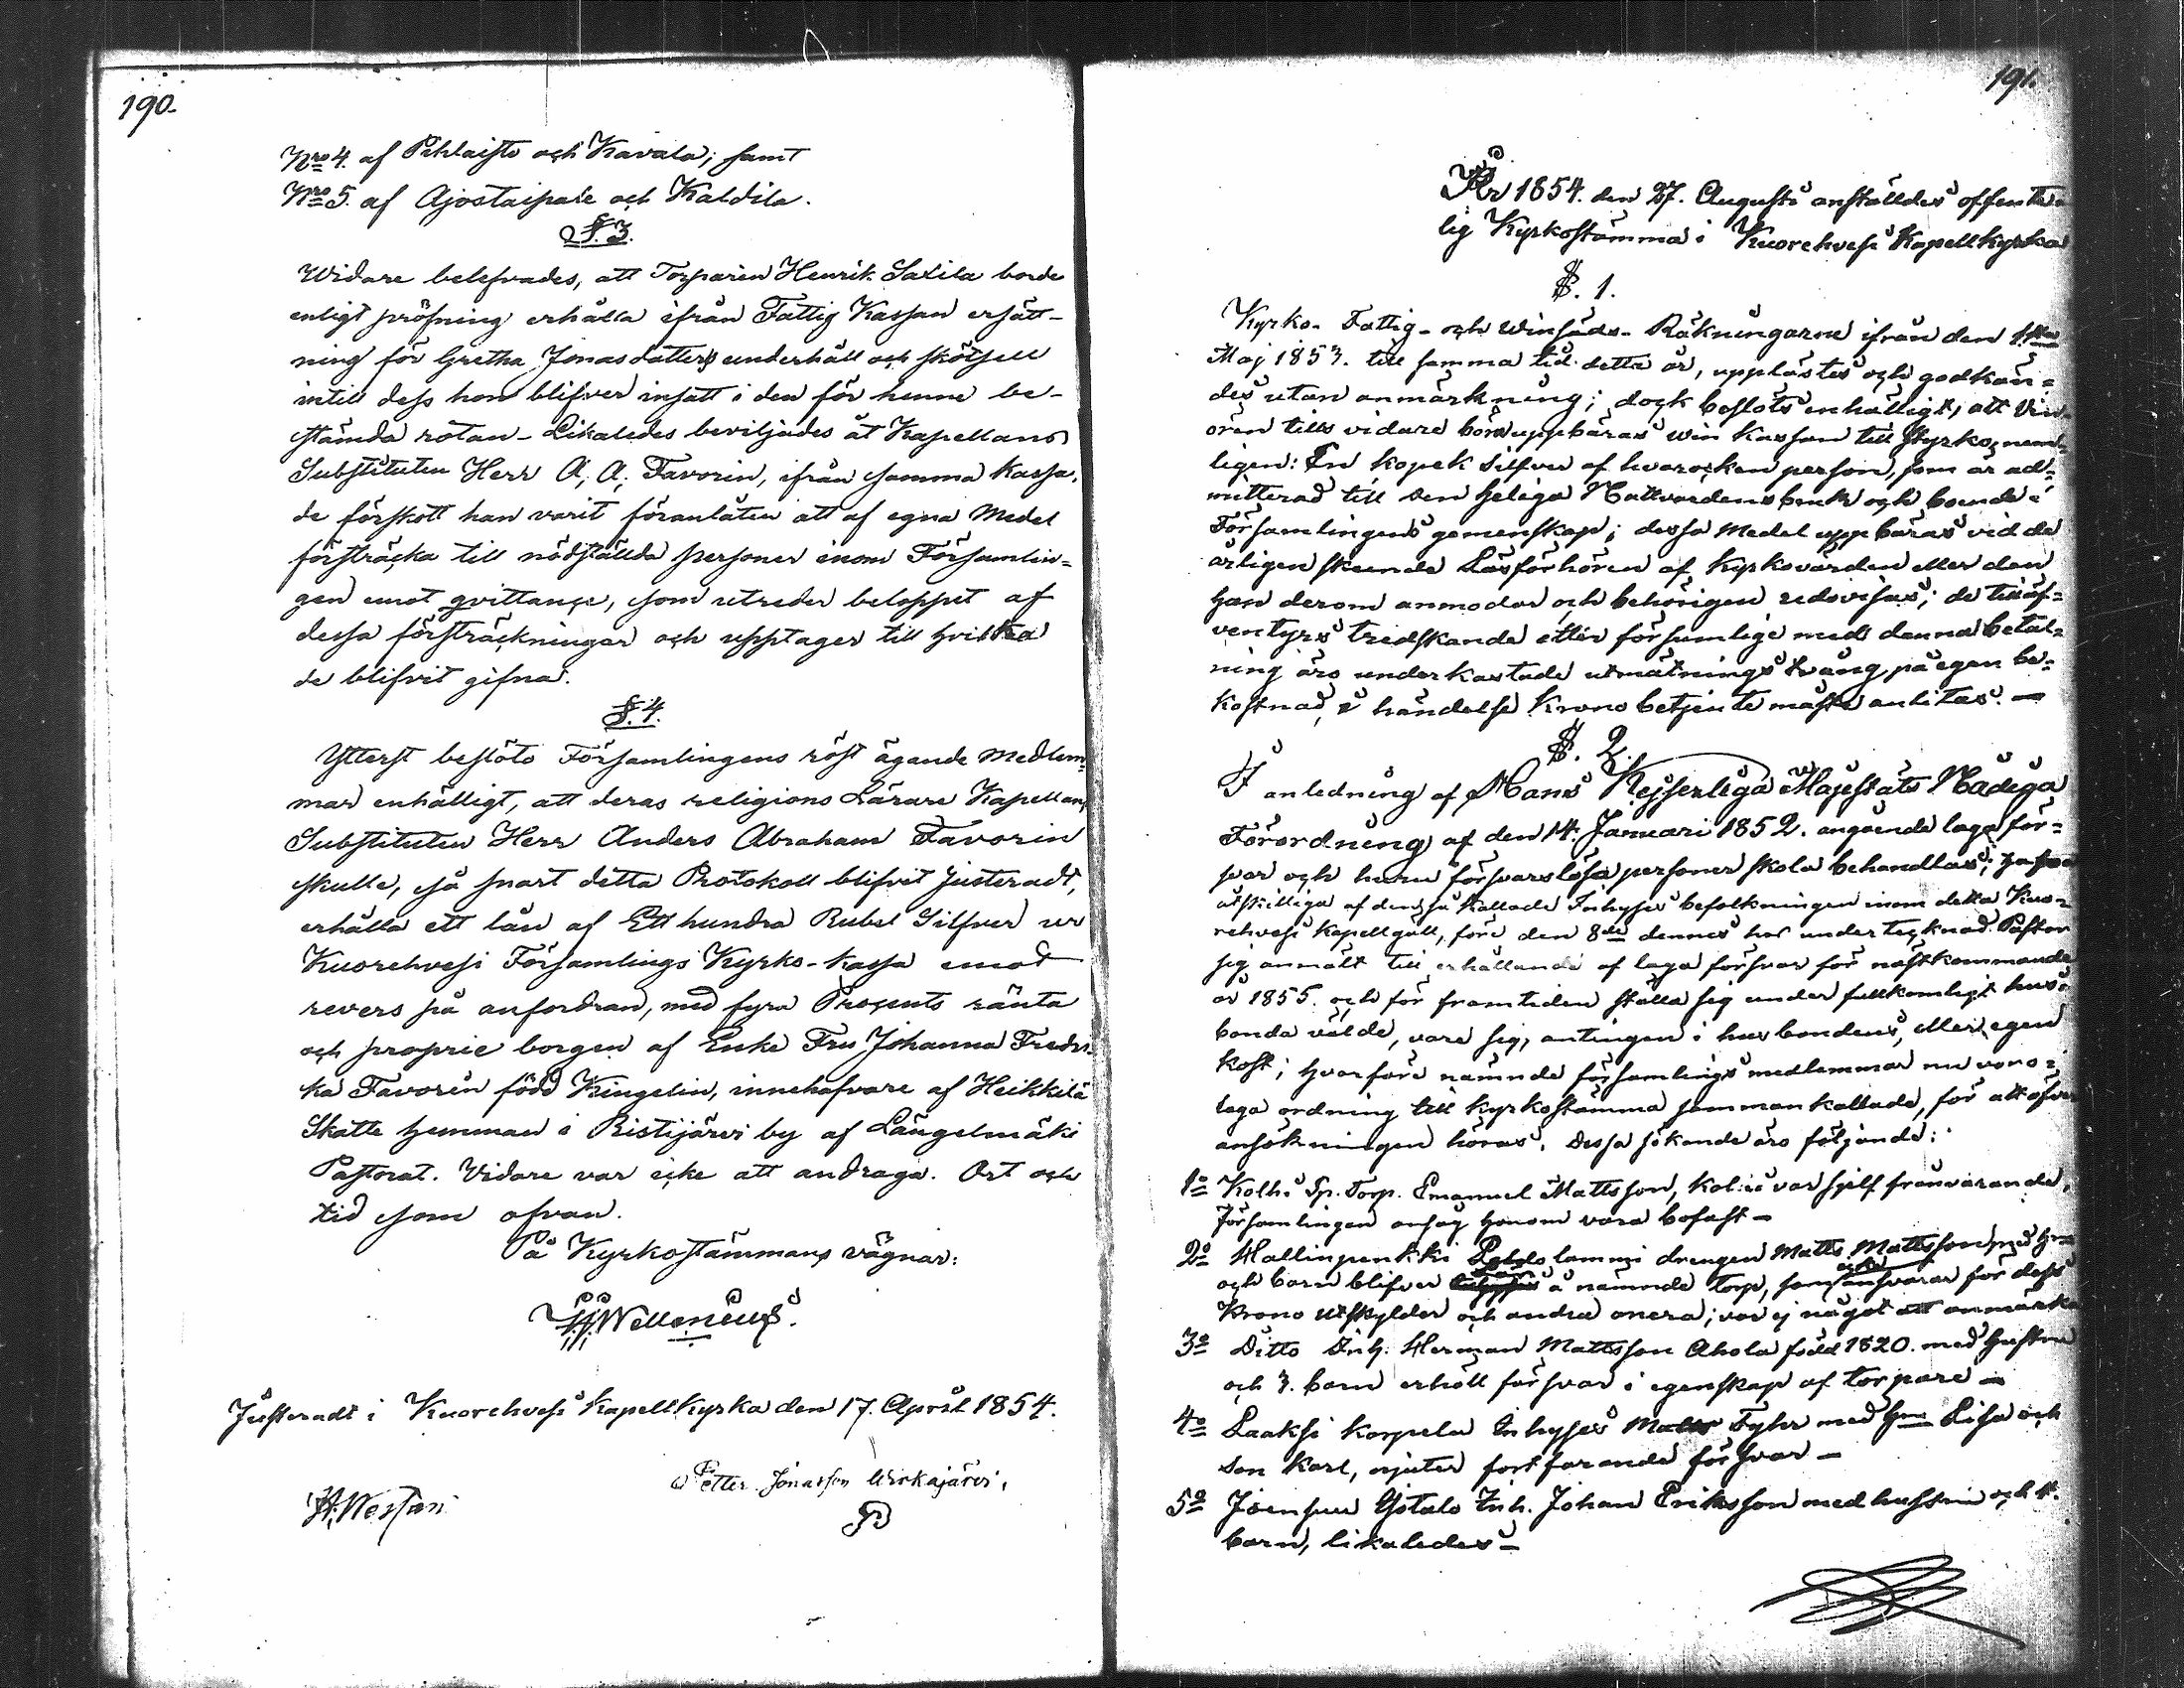 190.
Nro 4. af Pihlaisto och Kavala; samt
Nro 5. af Ajostaipale och Kaldila.
§. 3.
Widare belefvades, att Torparen Henrik Saxila borde
enligt pröfning erhålla ifrån Fattig Kassan ersätt-
ning för Gretha Jonasdotters underhåll och skötsell
intill dess hon blifver insatt i den för henne be-
stämda rotan - Likaledes beviljades åt Kapellans
Substituten Herr A. A. Favorin, ifrån samma kassa,
de förskott han varit föranlåten att af egna Medel
försträcka till nödställda personer inom Församlin=
gen emot qvittance, som utreder beloppet af
dessa försträckningar och upptager till hvilka
de blifvit gifna.
§. 4.
Ytterst beslöto Församlingens röst ägande Medlem=
mar enhälligt, att deras religions Lärare Kapellans
Substituten Herr Anders Abraham Favorin
skulle, så snart detta Protokoll blifvit justeradt,
erhålla ett lån af Ett hundra Rubel Silfver ur
Kuorehvesi Församlings Kyrko-kassa emot
revers på anfordran, med fyra Procents ränta
och proprie borgen af Enke Fru Johanna Fredri-
ka Favorin född Kingelin, innehafvare af Heikkilä
Skatte hemman i Ristijärvi by af Längelmäki
Pastorat. Vidare var icke att andraga. Ort och
tid som ofvan.
På Kyrkostämmans vägnar:
Justeradt i Kuorehvesi Kapell Kyrka den 17. April 1854.
Petter Jonasson Uirkajärvi.
191.
År 1854. den 27. Augusti anställdes offent=
lig Kyrkostämma i Kuorehvesi Kapellkyrka
§. 1.
Kyrko- Fattig- och Winsäds- Räkningarne ifrån den 1sta
Maj 1853. till samma tid detta år, upplästes och godkän=
des utan anmärkning; dock beslöts enhälligt, att Vin
ören tills vidare böra uppbäras win kassan till styrko, nem=
ligen: En kopek silfver af hvarochen person, som är ad=
mitterad till den heliga Nattvardens bruk och boende i
Församlingens gemenskap; dessa medel uppbäras vid de
årligen skeende Läsförhören af kyrkovärden eller den
han derom anmodar och behörigen redovisas; de till äf=
ventyrs tredskande eller försumlige med denna betal=
ning äro underkastade utmätnings tvång, på egen be=
kostnad, i händelse Kronobetjente måste anlitas. -
§. 2.
I anledning af Hans Kejserliga Majestäts Nådiga
Förordning af den 14. Januari 1852. angående laga för=
svar och huru försvarslösa personer skola behandlas; hafva
åtskillige af den så kallade Inhyses befolkningen inom detta Kuo=
rehvesi Kapellgäll, före den 8de dennes hos undertecknad Pastor
sig anmält till erhållande af laga försvar för nästkommande
år 1855. och för framtiden ställa sig under fullkomligt hus=
bonda välde, vare sig, antingen i husbondens, eller egen
kost; hvarföre nämnde församlings medlemmar nu voro i
laga ordning till kyrkostämma sammankallade, för att öfver
ansökningen höras. Dessa sökande äro följande:
1o Kolhi Sp. Torp. Emanuel Mattsson, var sjelf frånvarande,
församlingen ansåg honom vara bofast -
2o Hallinpenkki lammi drengen Matts Mattsson, med hu
och barn blifver å nämnde torp, som ansvarar för dess
Krono utskylder och andra onera; var ej något att anmärka
3o Ditto Inh. Herman Mattsson Ahola född 1820. med hustru
och 3. barn erhöll försvar i egenskap af torpare -
4o Laaksi Korpela Inhyses Matts Fyhr med Hu Lisa och
son Karl, njuter fortfarande försvar -
5o Joensuu Ylitalo Inh. Johan Eriksson med hustru och 4.
barn, likaledes -